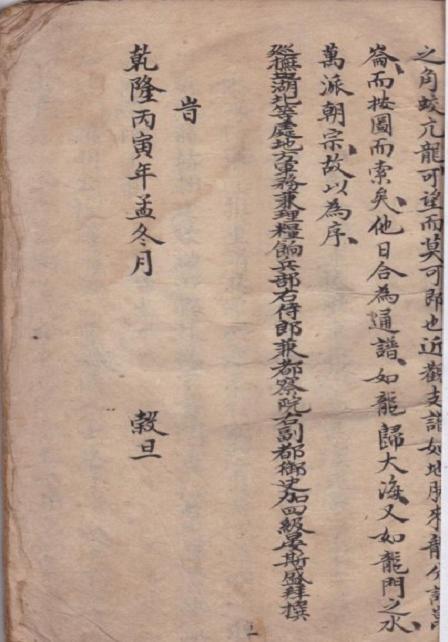 之角蛟亢龍可望而莫可即也近觀支譜如地脉來龍今
崙而按圖而索矣他日合為通譜如龍歸大海又如龍門之水
萬派朝宗故以為序
巡撫湖北等處地方軍務兼理糧餉兵部右侍郎兼都察院右副都御史加四級晏斯盛拜撰
旹
乾隆丙寅年孟冬月 榖旦